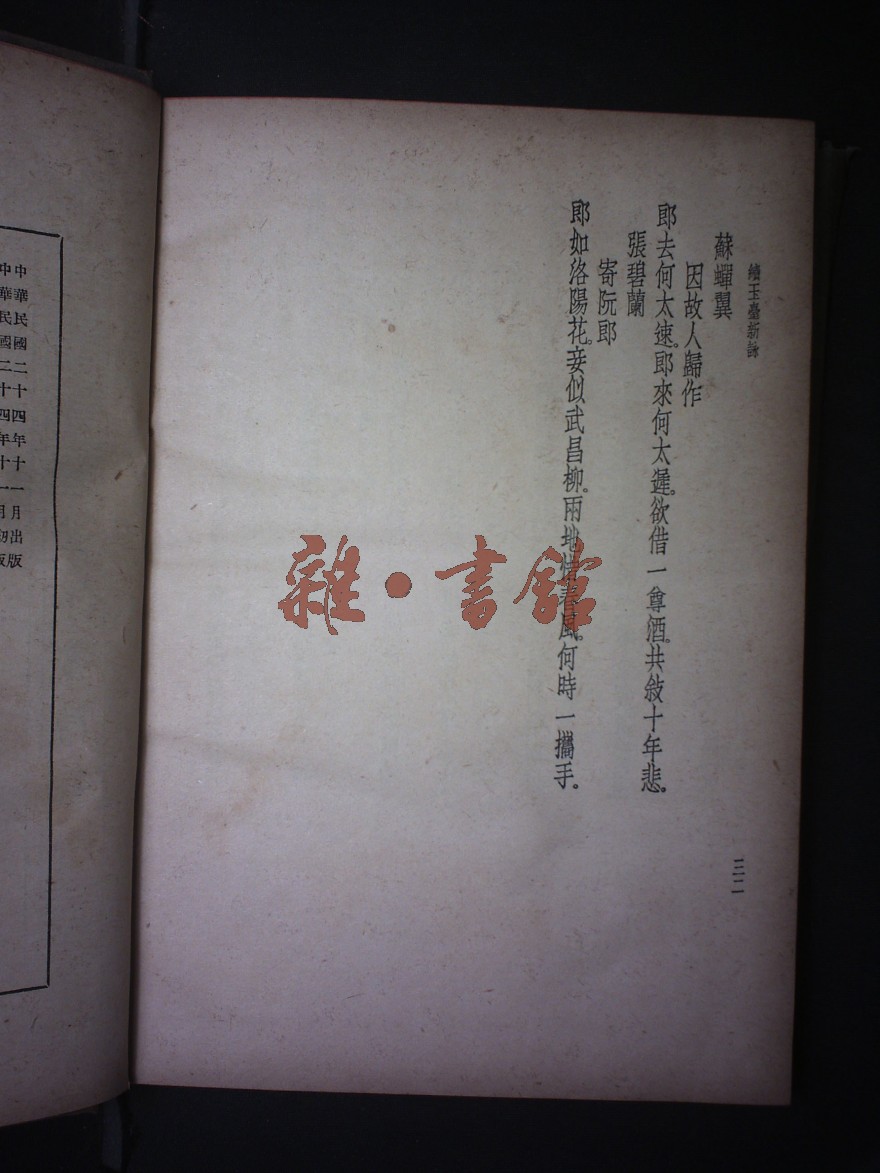 續玉臺新詠
三二
蘇蟬翼
因故人歸作
郎去何太速。郎來何太遲。欲借一尊酒。共敍十年悲。
張碧蘭
寄阮郎
郎如洛陽花。妾似武昌柳。兩地春風。何時一攜手。
雜·書館
中華民國二十四年十一月出版
中華民國二十四年十一月初版